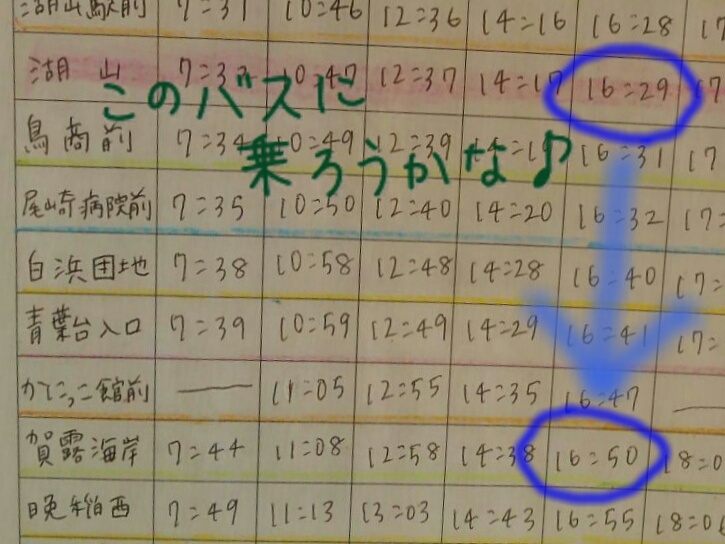 湖山駅前 7=31 10=46 12=36 14=16 16=28 17
湖山 7=37 10=47 12=37 14=17 16=29 17
このバスに
鳥商前 7=34 10=49 12=39 14=19 16=31 17
乗ろうかな♪
尾崎病院前 7=35 10=50 12=40 14=20 16=32 17=
白浜団地 7=38 10=58 12=48 14=28 16=40 17=
青葉台入口 7=39 10=59 12=49 14=29 16=41 17=
かにっこ館前 — 11=05 12=55 14=35 16=47 —
賀露海岸 7=44 11=08 12=58 14=38 16=50 18=0
晩稲西 7=49 11=13 13=03 14=43 16=55 18=06